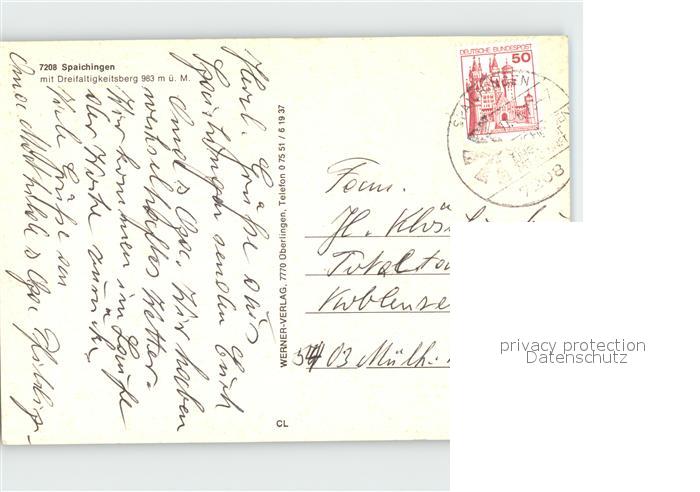 7208 Spaichingen
mit Dreifaltigkeitsberg 983 m ü. M.
Herzl. Grüße aus
Spaichingen senden Euch
Oma u. Opa. Wir haben
wechselhaftes Wetter.
Wir kommen im Laufe
der Woche zurück.
Viele Grüße von
Oma u. Opa
WERNER-VERLAG, 7770 Überlingen, Telefon 0 75 51 / 6 19 37
CL
DEUTSCHE BUNDESPOST
50
SPAICHINGEN
7208
Fam.
H. Klös
Koblenze
5403 Mülh.
privacy protection
Datenschutz